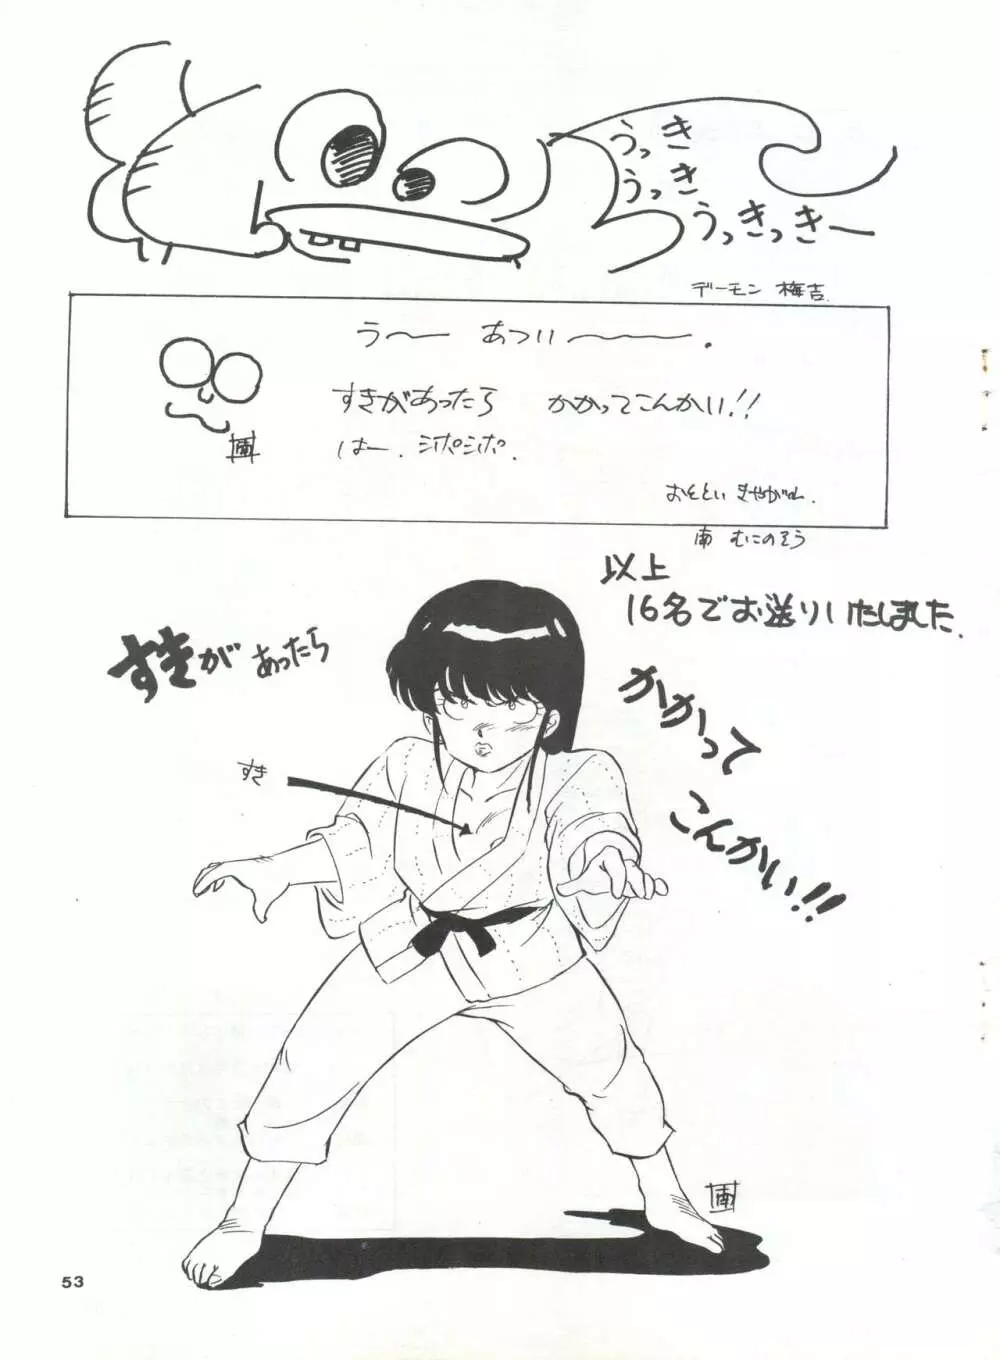 うっき
うっき
うっきっきー
デーモン 梅吉.
う〜 あつい〜.
すきがあったら かかってこんかい!!
はー. シポシポ.
南
おととい きやがれ.
南 むこのそう
以上
16名でお送りいたしました.
すきが あったら
かかって
こんかい!!
すき
南
53